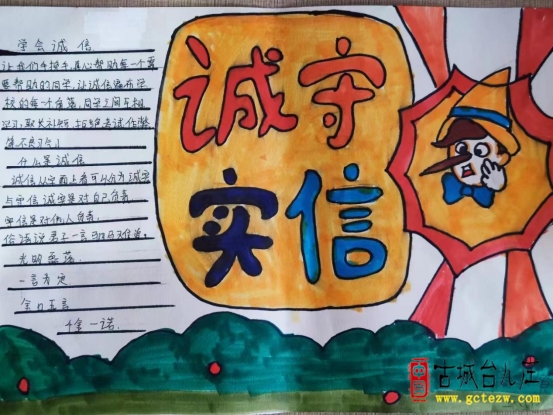 学会诚信
让我们手挽手,真心帮助每一个需
要帮助的同学,让诚信遍布学
校的每一个角落,同学之间互相
学习,取长补短,拒绝考试作弊
等不良习气
什么是诚信
诚信从字面上看可以分为诚实
与守信诚实是对自己负责
守信是对他人负责
俗话说君子一言驷马难追,
光明磊落
一言九鼎
金口玉言
一诺
诚守
实信
古城台儿庄
www.gctezw.com